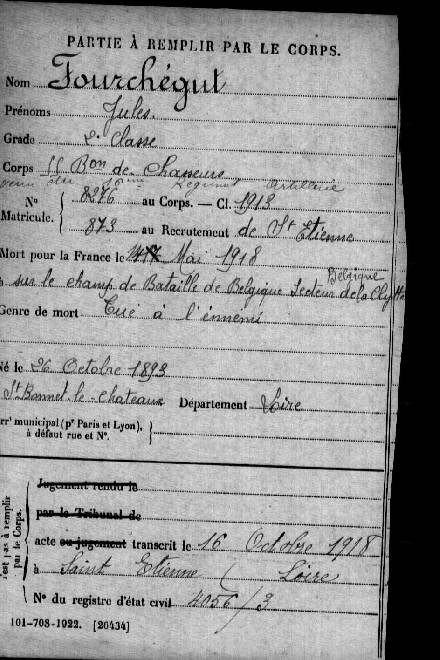 PARTIE À REMPLIR PAR LE CORPS.
Nom Fourchégut
Prénoms Jules
Grade 2e Classe
Corps 11 Bon de Chasseurs
Regiment Artillerie
No 8276 au Corps. — Cl. 1913
Matricule. 873 au Recrutement de St Etienne
Mort pour la France le Mai 1918
Belgique
sur le champ de Bataille de Belgique Secteur de la Clytte
Genre de mort Tué à l'ennemi
Né le 26 Octobre 1893
St Bonnet-le-Chateaux Département Loire
arrt municipal (pr Paris et Lyon),
à défaut rue et No.
Jugement rendu le
par le Tribunal de
acte ou jugement transcrit le 16 Octobre 1918
à Saint Etienne (Loire
No du registre d'état civil 4056/3
101-708-1922. [26434]
n'est pas à remplir
par le Corps.